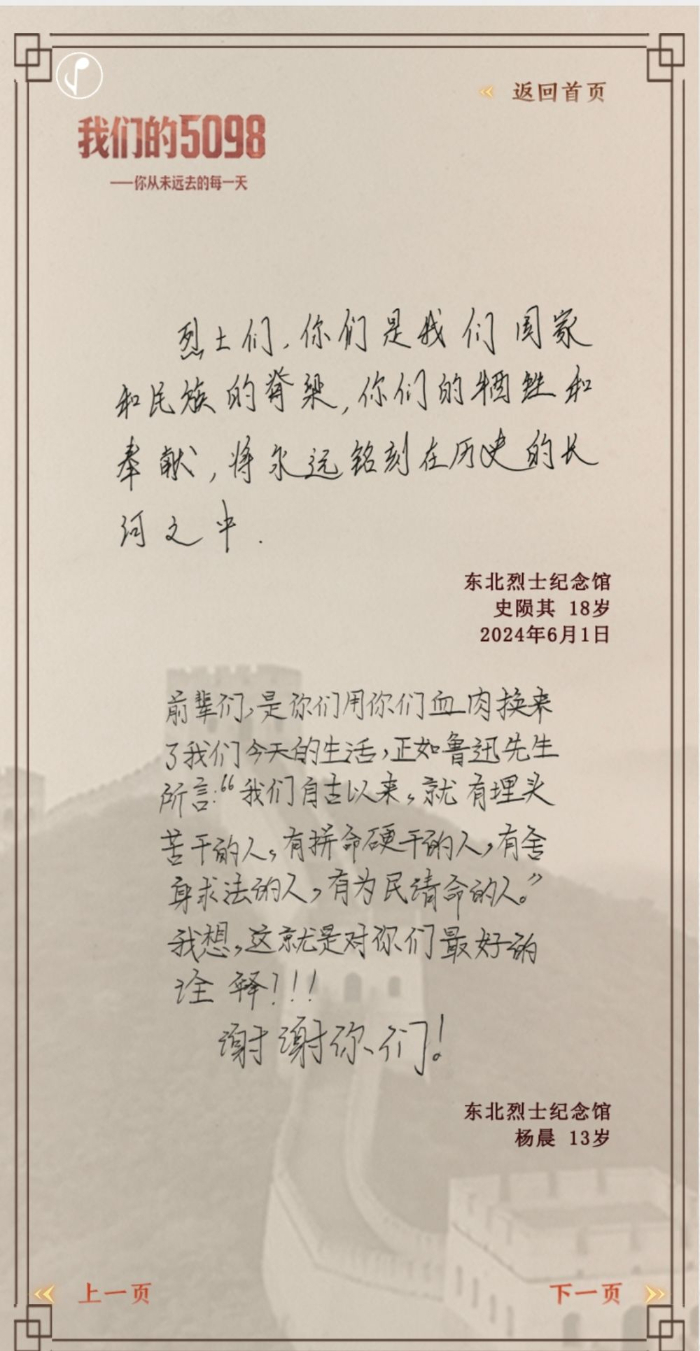 返回首页
我们的5098
——你从未远去的每一天
烈士们,你们是我们国家
和民族的脊梁,你们的牺牲和
奉献,将永远铭刻在历史的长
河之中.
东北烈士纪念馆
史陨其 18岁
2024年6月1日
前辈们,是你们用你们血肉换来
了我们今天的生活,正如鲁迅先生
所言:“我们自古以来,就有埋头
苦干的人,有拼命硬干的人,有舍
身求法的人,有为民请命的人。”
我想,这就是对你们最好的
诠释?!!!
谢谢你们!
东北烈士纪念馆
杨晨 13岁
上一页
下一页